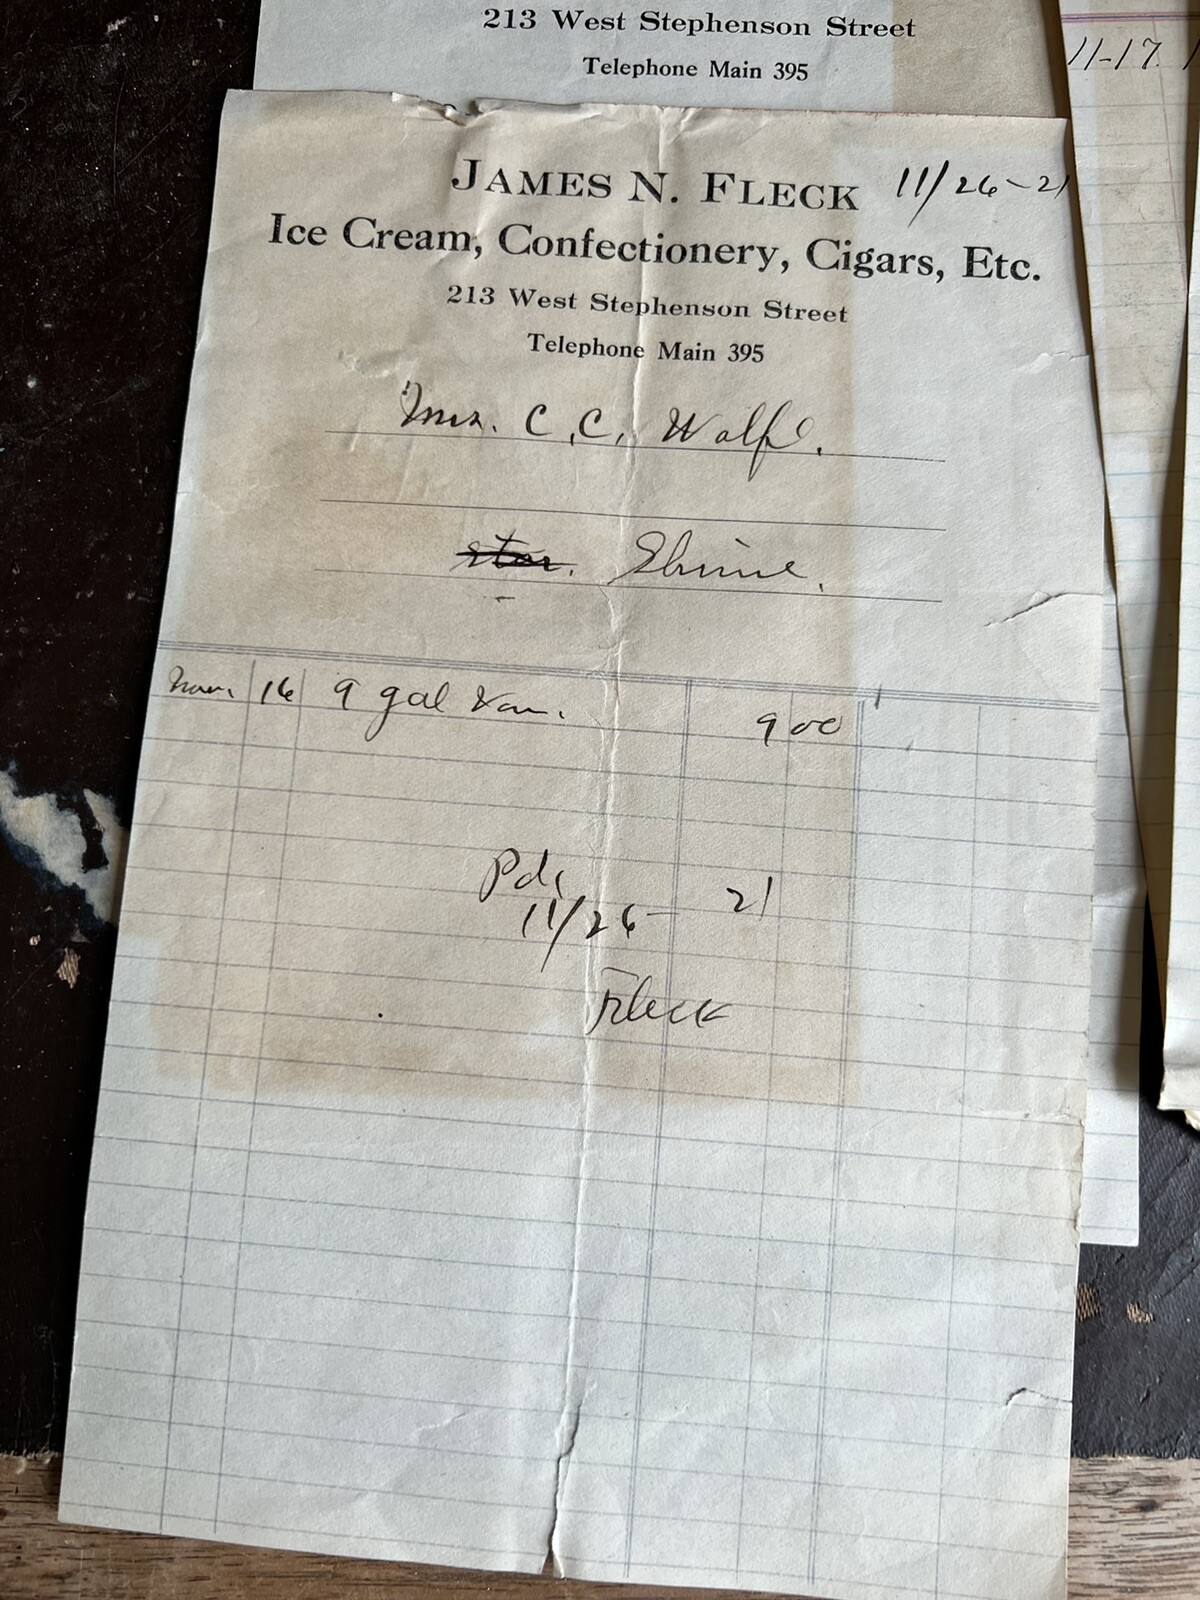 213 West Stephenson Street
Telephone Main 395
11-17.
JAMES N. FLECK 11/26-21
Ice Cream, Confectionery, Cigars, Etc.
213 West Stephenson Street
Telephone Main 395
Mrs. C. C. Wolfe.
Shrine.
Nov. 16 9 gal Van. 9 00
Pd.
11/26- 21
Fleck